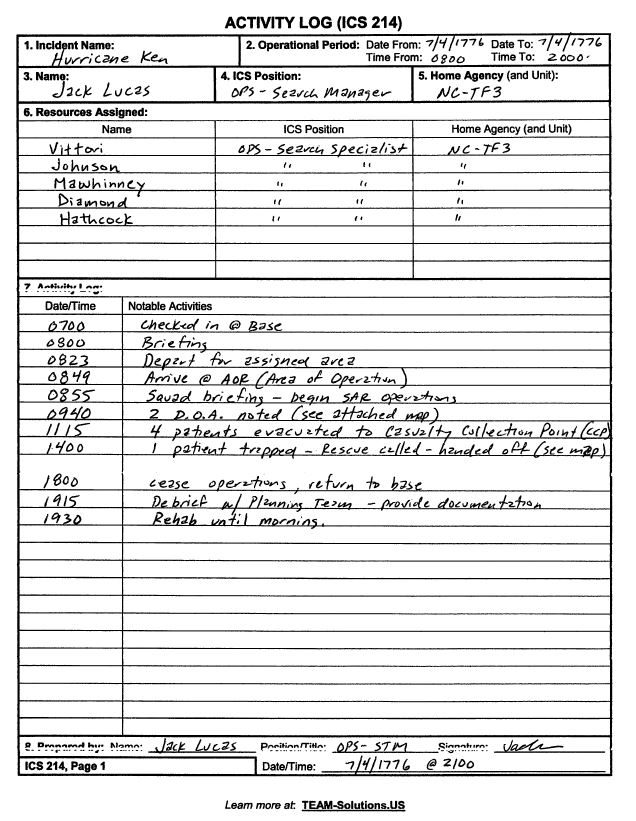 ACTIVITY LOG (ICS 214)
1. Incident Name: Hurricane Ken
2. Operational Period: Date From: 7/4/1776 Date To: 7/4/1776
Time From: 0800 Time To: 2000.
3. Name: Jack Lucas
4. ICS Position: OPS - Search Manager
5. Home Agency (and Unit): NC-TF3
6. Resources Assigned:
Name ICS Position Home Agency (and Unit)
Vittori OPS - Search Specialist NC-TF3
Johnson " " "
Mawhinney " " "
Diamond " " "
Hathcock " " "
7. Activity Log:
Date/Time Notable Activities
0700 Checked in @ Base
0800 Briefing
0823 Depart for assigned area
0849 Arrive @ AOR (Area of Operation)
0855 Squad briefing - begin SAR operations
0940 2 D.O.A. noted (see attached map)
1115 4 patients evacuated to Casualty Collection Point (CCP)
1400 1 patient trapped - Rescue called - handed off (see map)
1800 cease operations, return to base
1915 Debrief w/ Planning Team - provide documentation
1930 Rehab until morning.
8. Prepared by: Name: Jack Lucas Position/Title: OPS- STM Signature: Jack
ICS 214, Page 1 Date/Time: 7/4/1776 @ 2100
Learn more at: TEAM-Solutions.US